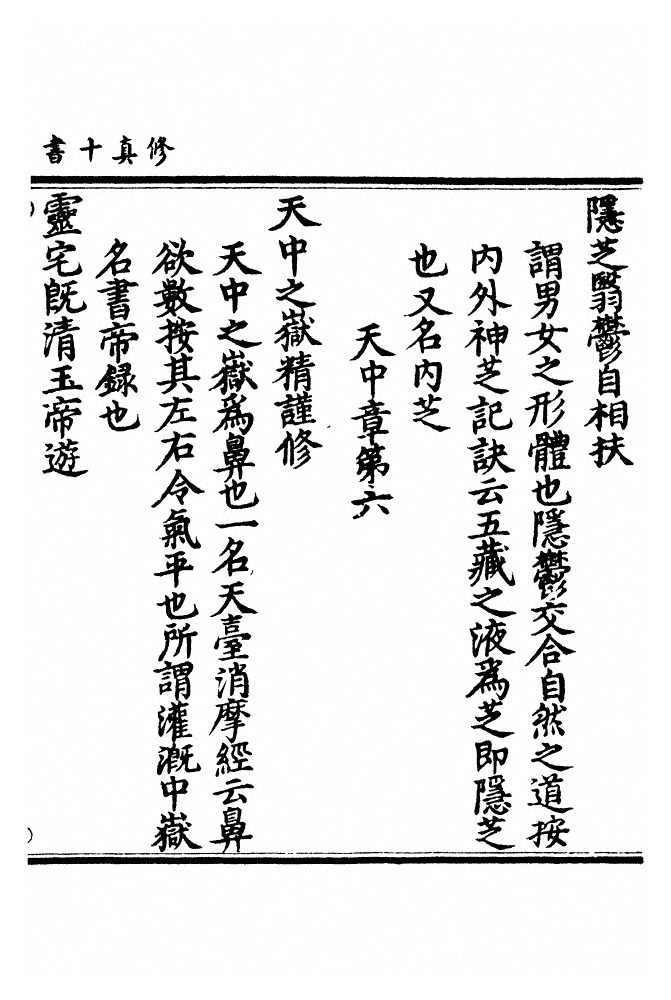 修真十書
隱芝翳鬱自相扶
謂男女之形體也隱鬱交合自然之道按
内外神芝記訣云五藏之液爲芝即隱芝
也又名内芝
天中章第六
天中之嶽精謹修
天中之嶽爲鼻也一名天臺消摩經云鼻
欲數按其左右令氣平也所謂灌溉中嶽
名書帝録也
靈宅旣清玉帝遊